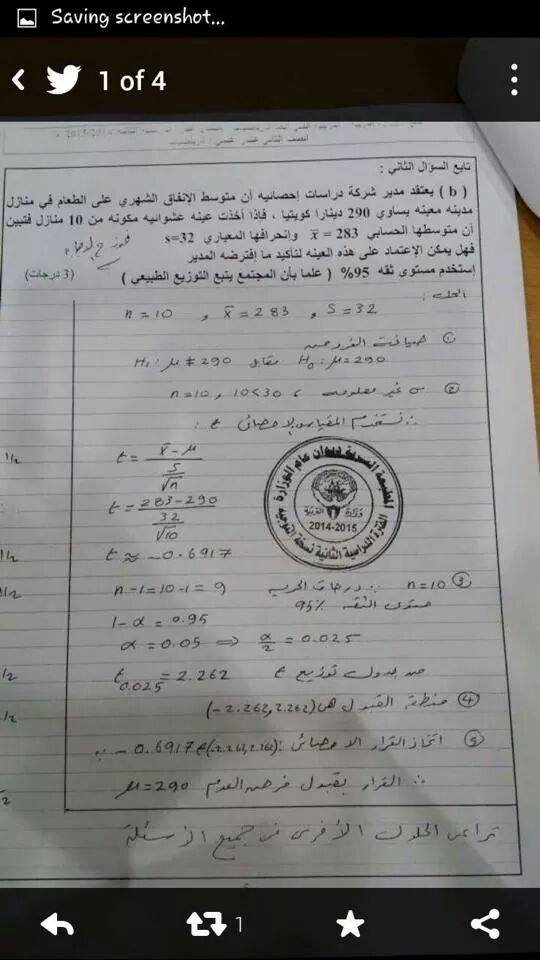 Saving screenshot...
1 of 4
تابع السؤال الثاني :
( b ) يعتقد مدير شركة دراسات إحصائيه أن متوسط الإنفاق الشهري على الطعام في منازل
مدينه معينه يساوي 290 دينارا كويتيا ، فإذا أخذت عينه عشوائيه مكونه من 10 منازل فتبين
أن متوسطها الحسابي x̄ = 283 وإنحرافها المعياري s=32
فهل يمكن الإعتماد على هذه العينه لتأكيد ما إفترضه المدير
إستخدم مستوى ثقه 95% ( علما بأن المجتمع يتبع التوزيع الطبيعي ) (3 درجات)
الحل :
n = 10 , x̄ = 283 , S = 32
① صياغة الفروض
H₀: μ = 290 مقابل H₁: μ ≠ 290
② σ غير معلومه ، n = 10 , 10 < 30
∴ نستخدم المقياس الإحصائي t :
t = (x̄ - μ) / (S / √n)
1/2
t = (283 - 290) / (32 / √10)
t ≈ -0.6917
1/2
③ n = 10 ∴ درجات الحرية n - 1 = 10 - 1 = 9
1/2
مستوى الثقه 95%
1 - α = 0.95
α = 0.05 ⟹ α/2 = 0.025
من جدول توزيع t t0.025 = 2.262
1/2
④ منطقة القبول هي (-2.262, 2.262)
1/2
⑤ اتخاذ القرار الاحصائي : ∵ -0.6917 ∈ (-2.262, 2.262)
∴ القرار بقبول فرض العدم μ = 290
تراعى الحلول الأخرى في جميع الأسئلة
المطبعة السرية ديوان عام الوزارة
وزارة التربية
2014-2015
الفترة الدراسية الثانية نسخة التوجيه
1